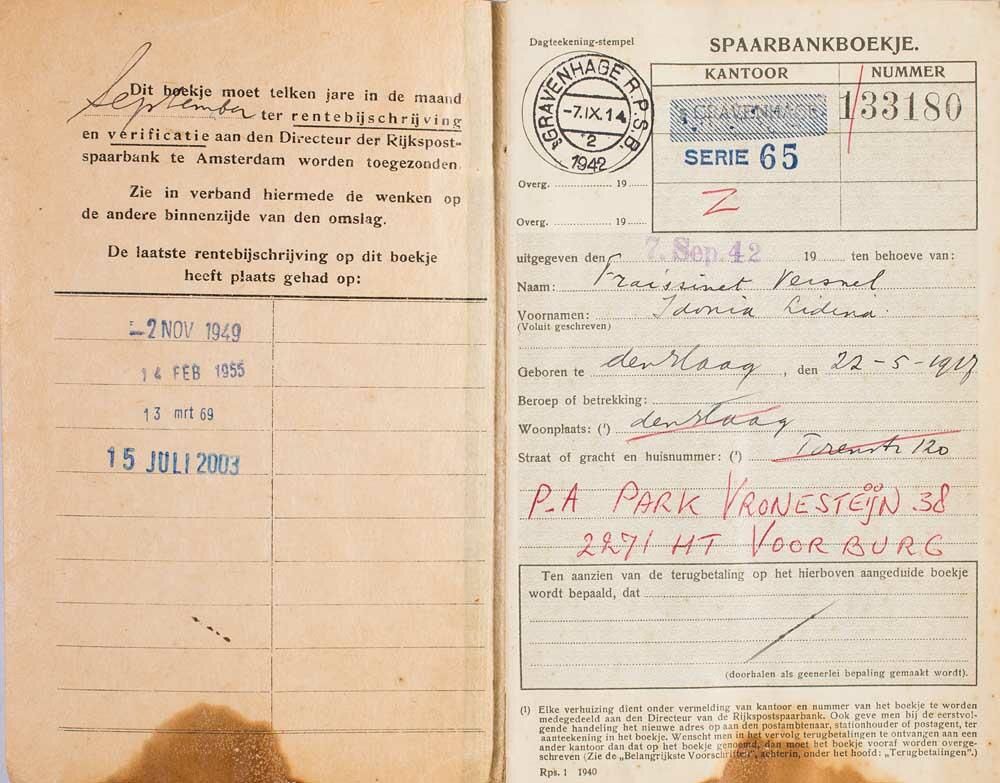 Dit boekje moet telken jare in de maand
September ter rentebijschrijving
en verificatie aan den Directeur der Rijkspost-
spaarbank te Amsterdam worden toegezonden.
Zie in verband hiermede de wenken op
de andere binnenzijde van den omslag.
De laatste rentebijschrijving op dit boekje
heeft plaats gehad op:
-2 NOV 1949
14 FEB 1955
13 mrt 69
15 JULI 2003
Dagteekening-stempel
SPAARBANKBOEKJE.
KANTOOR NUMMER
'sGRAVENHAGE R.P.S.B.
-7.IX.14
2
1942
'sGRAVENHAGE 133180
SERIE 65
Z
Overg. 19
Overg. 19
uitgegeven den 7. Sep. 42 19 ten behoeve van:
Naam: Fraissinet Versnel
Voornamen: Idonia Lidina
(Voluit geschreven)
Geboren te den Haag, den 22-5-1917
Beroep of betrekking:
Woonplaats: (1) den Haag
Straat of gracht en huisnummer: (1) 120
P.A PARK VRONESTEÏJN 38
2271 HT VOORBURG
Ten aanzien van de terugbetaling op het hierboven aangeduide boekje
wordt bepaald, dat
(doorhalen als geenerlei bepaling gemaakt wordt).
(1) Elke verhuizing dient onder vermelding van kantoor en nummer van het boekje te worden
medegedeeld aan den Directeur van de Rijkspostspaarbank. Ook geve men bij de eerstvol-
gende handeling het nieuwe adres op aan den postambtenaar, stationhouder of postagent, ter
aanteekening in het boekje. Wenscht men in het vervolg terugbetalingen te ontvangen aan een
ander kantoor dan dat op het boekje genoemd, dan moet het boekje vooraf worden overge-
schreven (Zie de „Belangrijkste Voorschriften", achterin, onder het hoofd: „Terugbetalingen".)
Rps. 1 1940